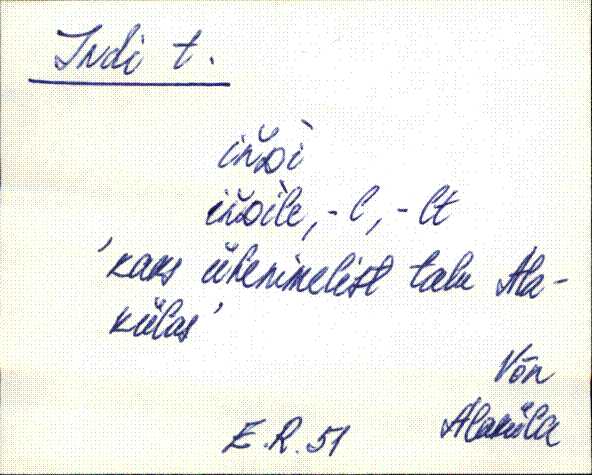 Indi t.
iňᴅì
iňᴅìle, -l, -lt
'kaks ühenimelist talu Ala-
külas'
Võn
Alaküla
E.R. 51